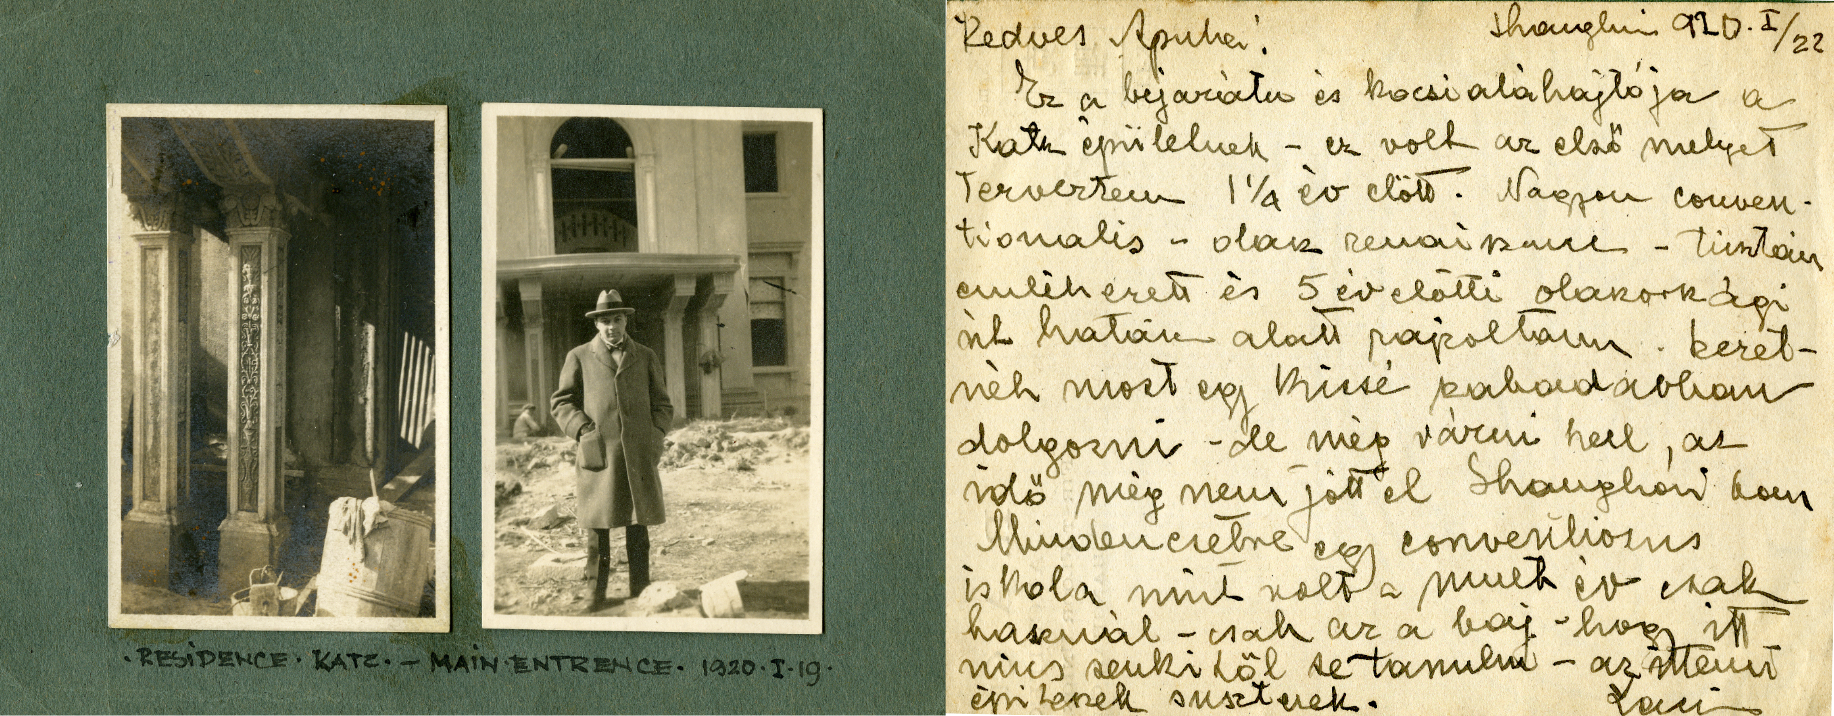 · RESIDENCE · KATZ · – MAIN · ENTRENCE · 1920 · I · 19 ·
Kedves Apuka! Shanghai 920. I/22
Ez a bejárata és kocsialáhajtója a
Katz épületnek – ez volt az első melyet
terveztem 1 1/4 év előtt. Nagyon conven-
tionalis – olasz renaiszance – tisztán
emlékezett és 5 év előtti olaszországi
út hatása alatt rajzoltam. Szeret-
nék most egy kissé szabadabban
dolgozni – de még várni kell, az
idő még nem jött el Shanghai ban
Mindenesetre egy conventiosus
iskola mint volt a mult év csak
használ – csak az a baj – hogy itt
nincs senkitől se tanulni – az itteni
építészek suszterek. Laci